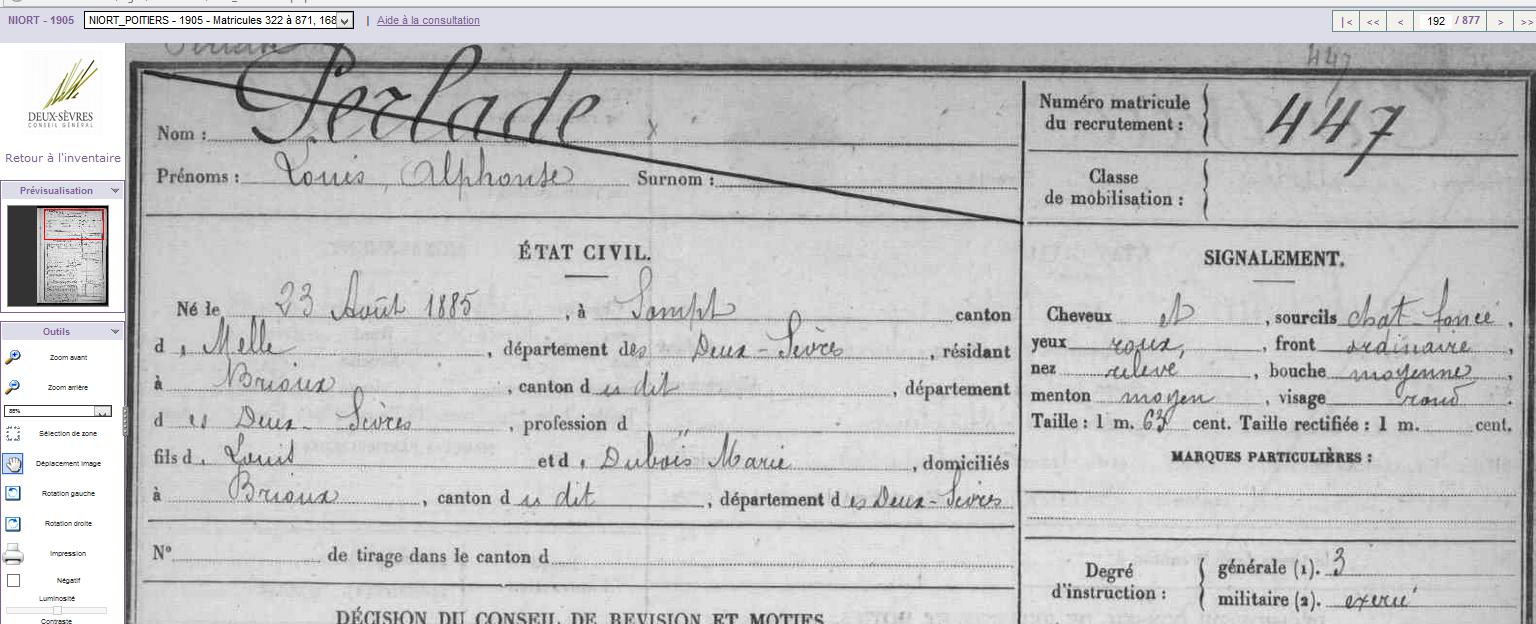 NIORT - 1905
NIORT_POITIERS - 1905 - Matricules 322 à 871, 168
| Aide à la consultation
|< << < 192 / 877 > >>
DEUX-SÈVRES
CONSEIL GÉNÉRAL
Retour à l'inventaire
Prévisualisation
Outils
Zoom avant
Zoom arrière
88%
Sélection de zone
Déplacement image
Rotation gauche
Rotation droite
Impression
Négatif
Luminosité
Contraste
447
Nom : Perlade
Prénoms : Louis, Alphonse Surnom :
Numéro matricule
du recrutement : 447
Classe
de mobilisation :
ÉTAT CIVIL.
Né le 23 Août 1885, à Sompt canton
d Melle, département des Deux-Sèvres, résidant
à Brioux, canton du dit, département
des Deux-Sèvres, profession d "
fils d Louis et d Dubois Marie, domiciliés
à Brioux, canton du dit, département des Deux-Sèvres
N° de tirage dans le canton d
DÉCISION DU CONSEIL DE REVISION ET MOTIFS
SIGNALEMENT.
Cheveux et, sourcils chat-foncé,
yeux roux, front ordinaire,
nez relevé, bouche moyenne,
menton moyen, visage rond.
Taille : 1 m. 63 cent. Taille rectifiée : 1 m. cent.
MARQUES PARTICULIÈRES :
Degré
d'instruction :
générale (1). 3
militaire (2). exercé